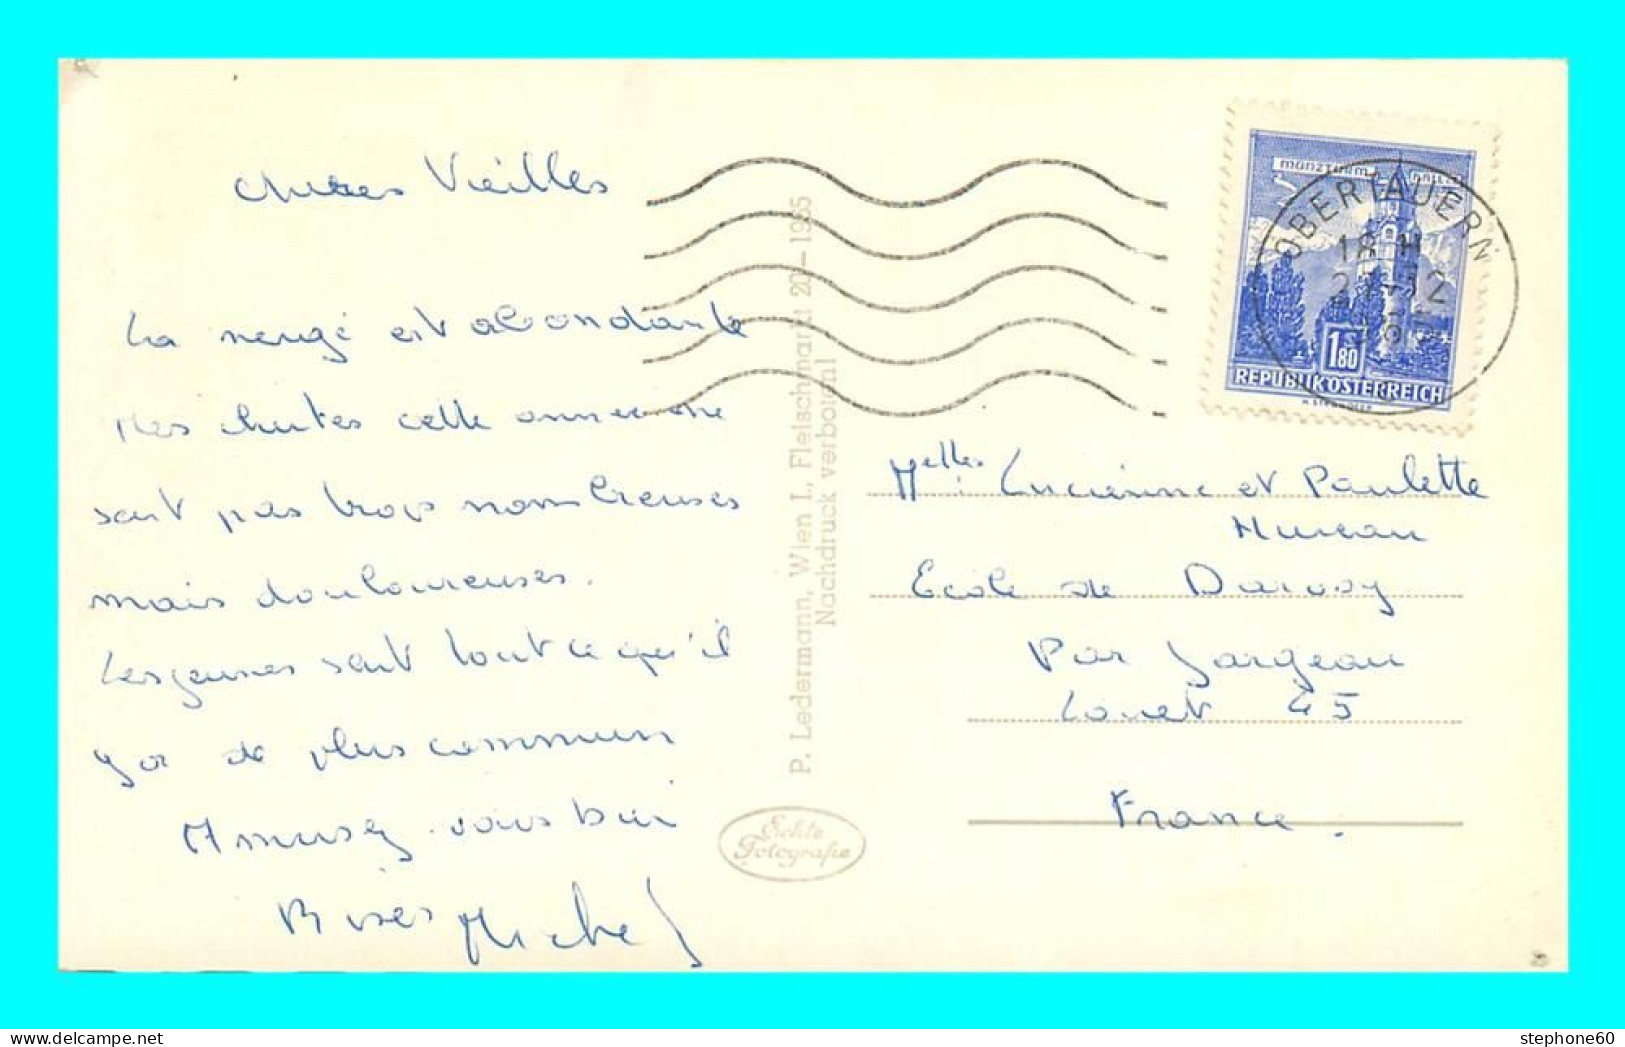 chères Vieilles
La neige est abondante
Les chutes cette année ne
sont pas trop nombreuses
mais douloureuses.
Les jeunes sont tout ce qu'il
y a de plus commun
Amusez-vous bien
Bises Michel
P. Ledermann, Wien I., Fleischmarkt 20 – 1965
Nachdruck verboten!
Echte
Fotografie
MÜNZTURM HALL
1.80
REPUBLIK ÖSTERREICH
OBERTAUERN
Melles Lucienne et Paulette
Mureau
Ecole de Darvoy
Par Jargeau
Loiret 45
France.
stephone60